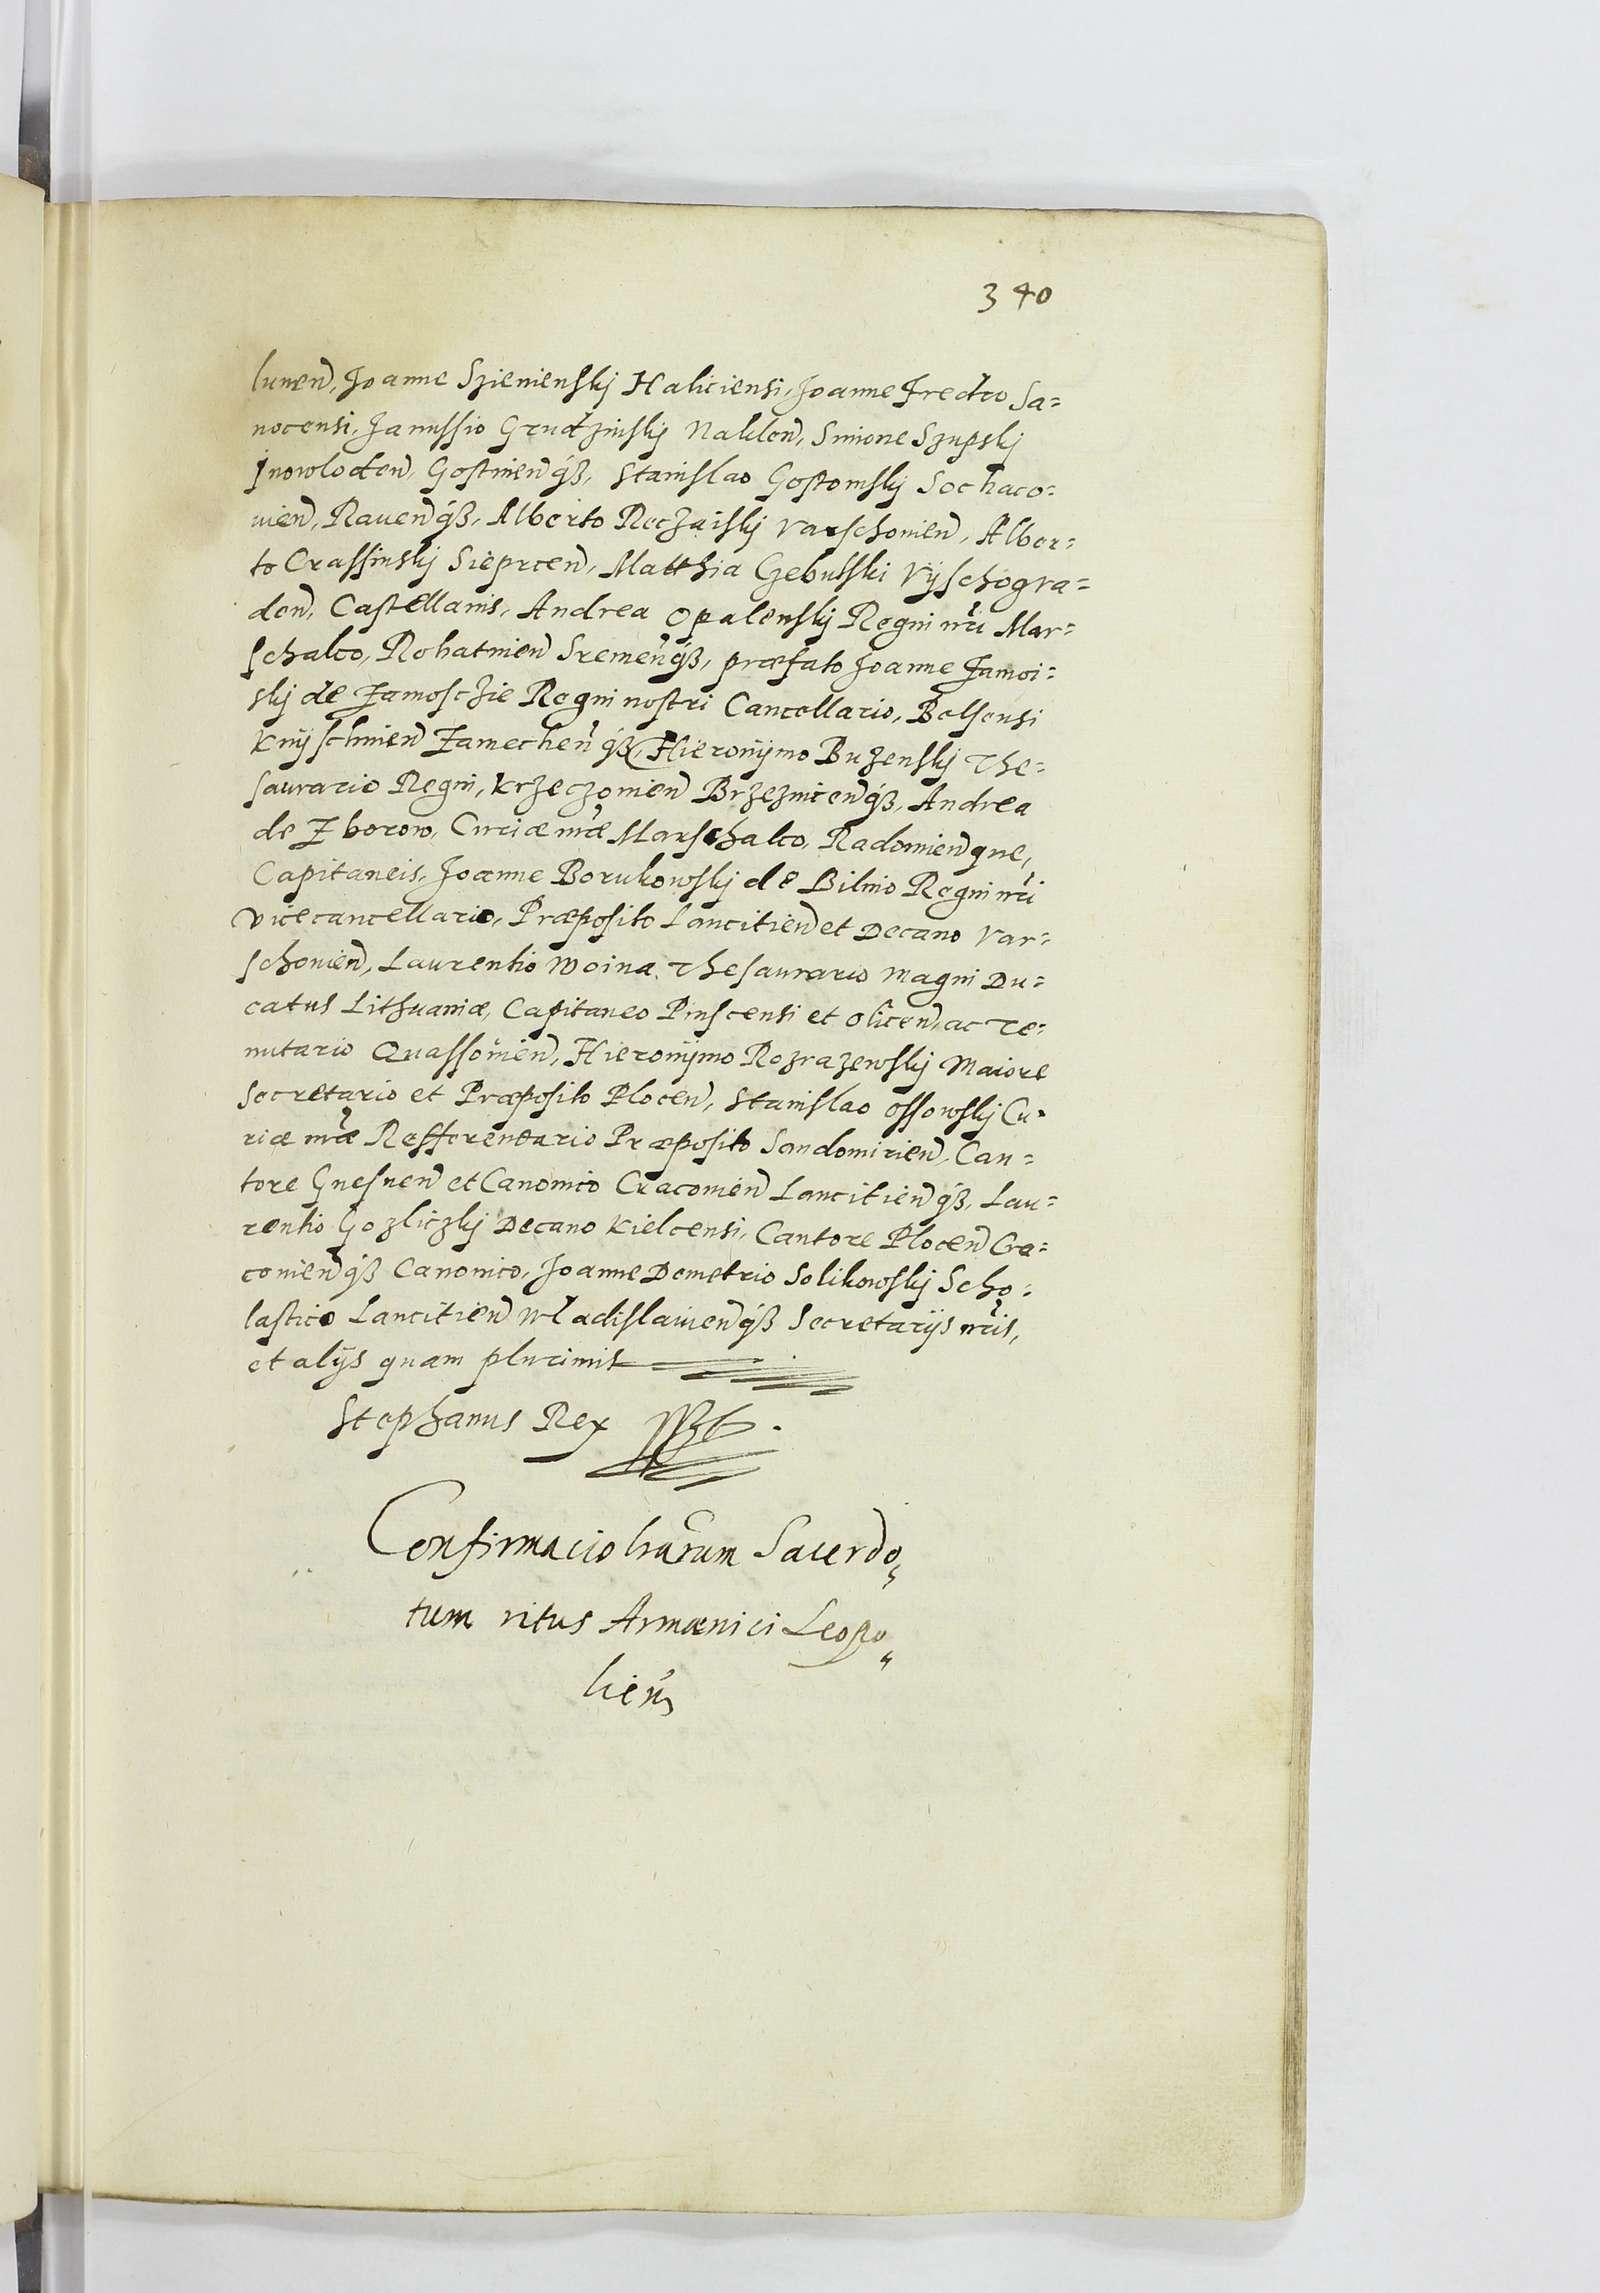 340
lunen, Joanne Szienienskij Haliciensi, Joanne Fredro Sa=
nocensi, Janussio Grudzinskij Naklen, Simone Szupskij
Jnowloden, Gostinen qȝ, Stanislao Gostomskij Sochaco=
uien, Rauen qȝ, Alberto Reczaiskij Varschouien, Alber=
to Crassinskij Sieprcen, Matthia Gebulski Vijschogra=
den, Castellanis, Andrea Opalenskij Regni nri Mar=
schalco, Rohatinen Sremen qȝ, præfato Joanne Zamoi=
skij de Zamosczie Regni nostri Cancellario, Belsensi
Knijschinen Zamechen qȝ, Hieronijmo Buzenskij The=
saurario Regni, Krzeczouien Brzeznicen qȝ, Andrea
de Zborow, Curiæ nræ Marschalco, Radomien que,
Capitaneis, Joanne Borukowskij de Bilnio Regni nri
vicecancellario, Præposito Lancitien et Decano Var=
schouien, Laurentio Woina Thesaurario Magni Du=
catus Lithuaniæ, Capitaneo Pinscensi et Olicen, ac Te=
nutario Quassouien, Hieronijmo Rozrazewskij Maiore
Secretario et Præposito Plocen, Stanislao Ossowskij Cu=
riæ nræ Refferendario Præposito Sandomirien, Can=
tore Gnesnen et Canonico Cracouien Lancitien qȝ, Lau=
rentio Gozliczkij Decano Kielcensi, Cantore Plocen Cra=
couien qȝ Canonico, Joanne Demetrio Solikowskij Scho=
lastico Lancitien Wladislauien qȝ Secretarijs nris,
et alijs quam plurimis
Stephanus Rex
Confirmacio lrarum Sacerdo„
tum ritus Armænici Leopo„
lien